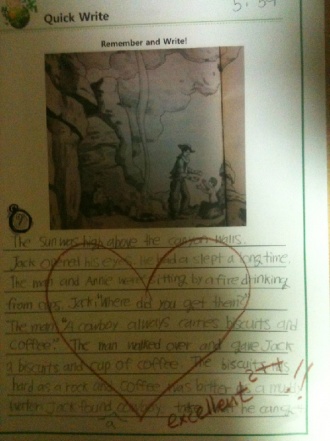 5. 59
Quick Write
Remember and Write!
The sun was high above the canyon walls.
Jack opened his eyes. He had a slept a long time.
The man and Annie were sitting by a fire drinking
from cups. Jack "Where did you get them?"
The man "A cowboy always carries biscuits and
coffee." The man walked over and gave Jack
a biscuits and cup of coffee. The biscuit was
hard as a rock and coffee was bitter as a mud
water. Jack found cowboys he
excellent!!